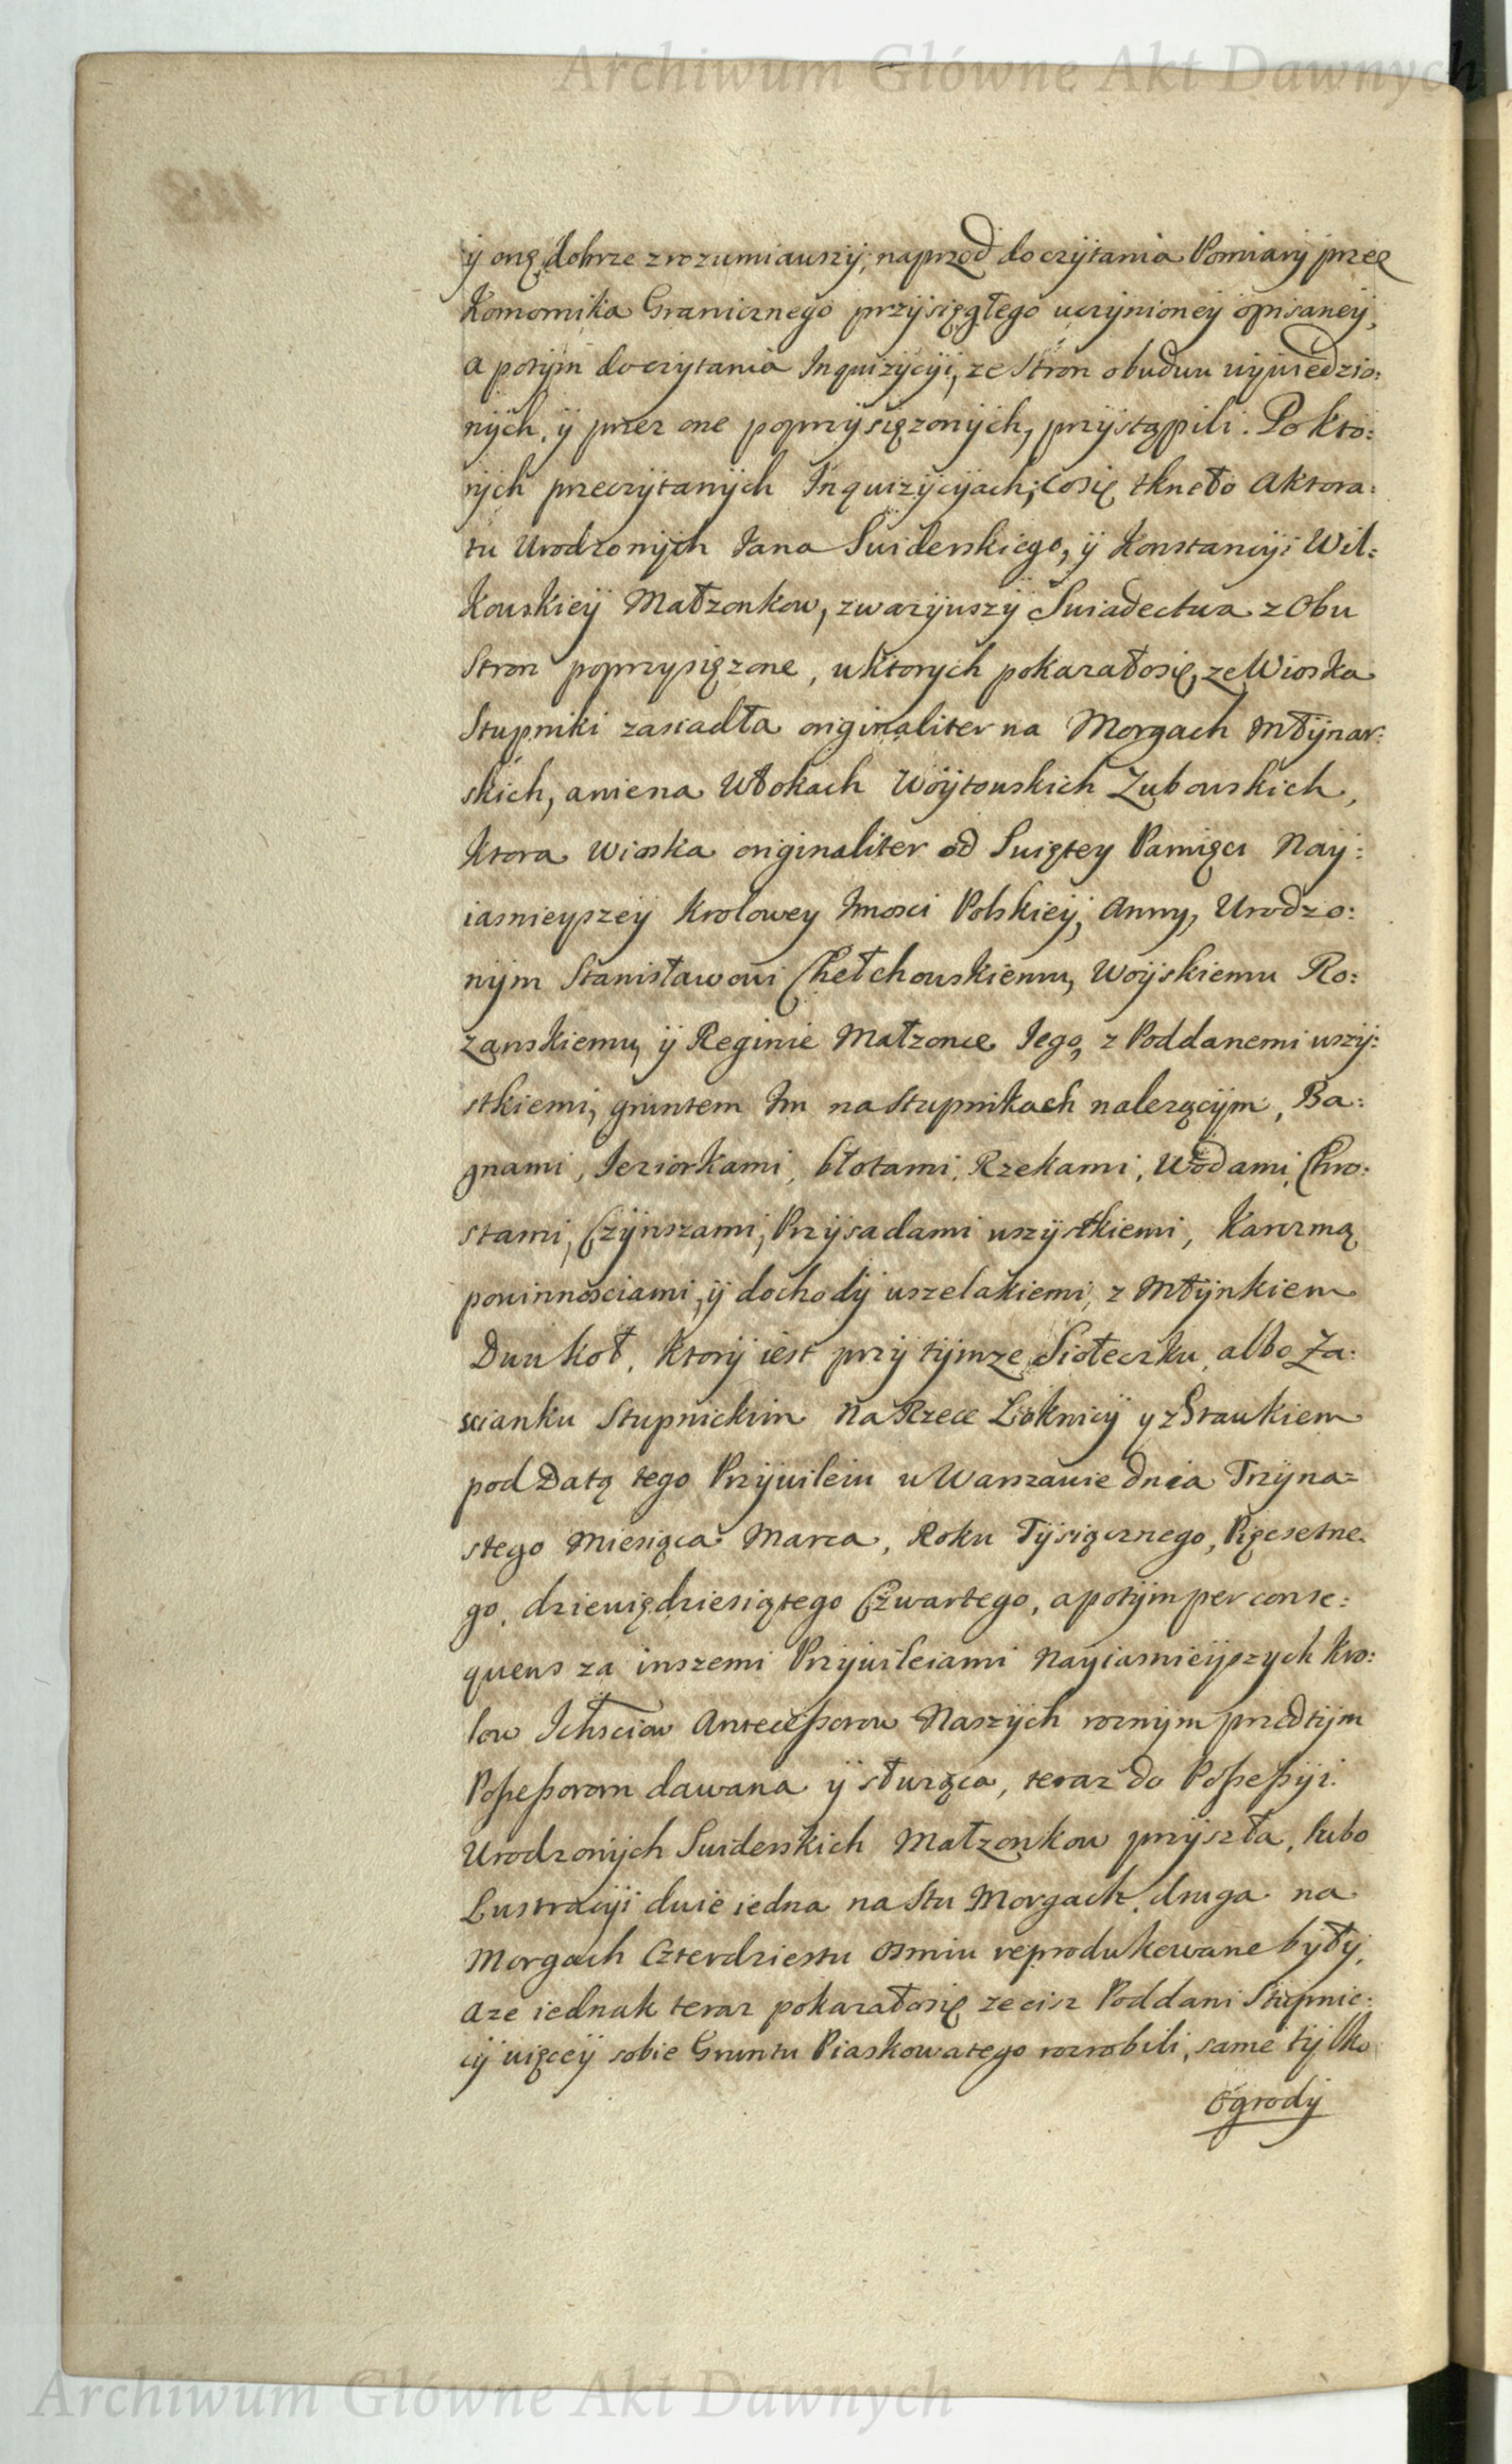 Archiwum Główne Akt Dawnych
ÿ onę dobrze zrozumiawszÿ, naprzod do czÿtania Pomiarÿ przez
Komornika Granicznego przÿsięgłego uczÿnioneÿ opisaneÿ,
a potÿm do czÿtania Inquizÿcÿi, ze Stron obudwu wÿwiedzio:
nÿch, ÿ przez one poprzÿsięzonÿch, przÿstąpili. Po kto:
rÿch przeczÿtanÿch Inquizÿcÿach; co się tkneło Aktora:
tu Urodzonÿch Jana Swiderskiego, ÿ Konstancÿi Wil:
kowskieÿ Małzonkow, zwazÿwszÿ Swiadectwa z Obu
Stron poprzysięzone, w ktorych pokazało się, ze Wioska
Stupniki zasiadła originaliter na Morgach Młÿnar:
skich, a nie na Włokach Woÿtowskich Zubowskich,
ktora Wioska originaliter od Swiętey Pamięci Naÿ:
iasnieyszeÿ Krolowey Jmosci Polskieÿ, Anny, Urodzo:
nÿm Stanisławowi Chełchowskiemu, Woÿskiemu Ro:
zanskiemu, ÿ Reginie Małzonce Jego, z Poddanemi wszÿ:
stkiemi, gruntem Jm na Stupnikach nalezącÿm, Ba:
gnami, Jeziorkami, błotami, Rzekami, Wodami, Chro:
stami, Czÿnszami, Przÿsadami wszÿstkiemi, Karczmą
powinnosciami, ÿ dochodÿ wszelakiemi, z Młÿnkiem
Dwu koł, ktorÿ iest przÿ tÿmze Siołeczku, albo Za:
scianku Stupnickim na Rzece Loknicÿ y z Stawkiem
pod Datą tego Przÿwileiu w Warszawie dnia Trzÿna=
stego Miesiąca Marca, Roku Tÿsiącznego, Pięcsetne
go, dziewiędziesiątego Czwartego, a potÿm per conse:
quens za inszemi Przÿwileiami Nayiasnieÿszych Kro:
low Ichsciow Antecessorow Naszÿch roznÿm przed tÿm
Possessorom dawana ÿ słuząca, teraz do Possessÿi
Urodzonÿch Swiderskich Małzonkow przÿszła, lubo
Lustracÿi dwie iedna na Stu Morgach, druga na
Morgach Czterdziestu Osmiu reprodukowane były,
a ze iednak teraz pokazało się ze ciz Poddani Stupnic:
cÿ więceÿ sobie Gruntu Piaskowatego rozrobili, same tÿlko
Ogrodÿ
Archiwum Główne Akt Dawnych